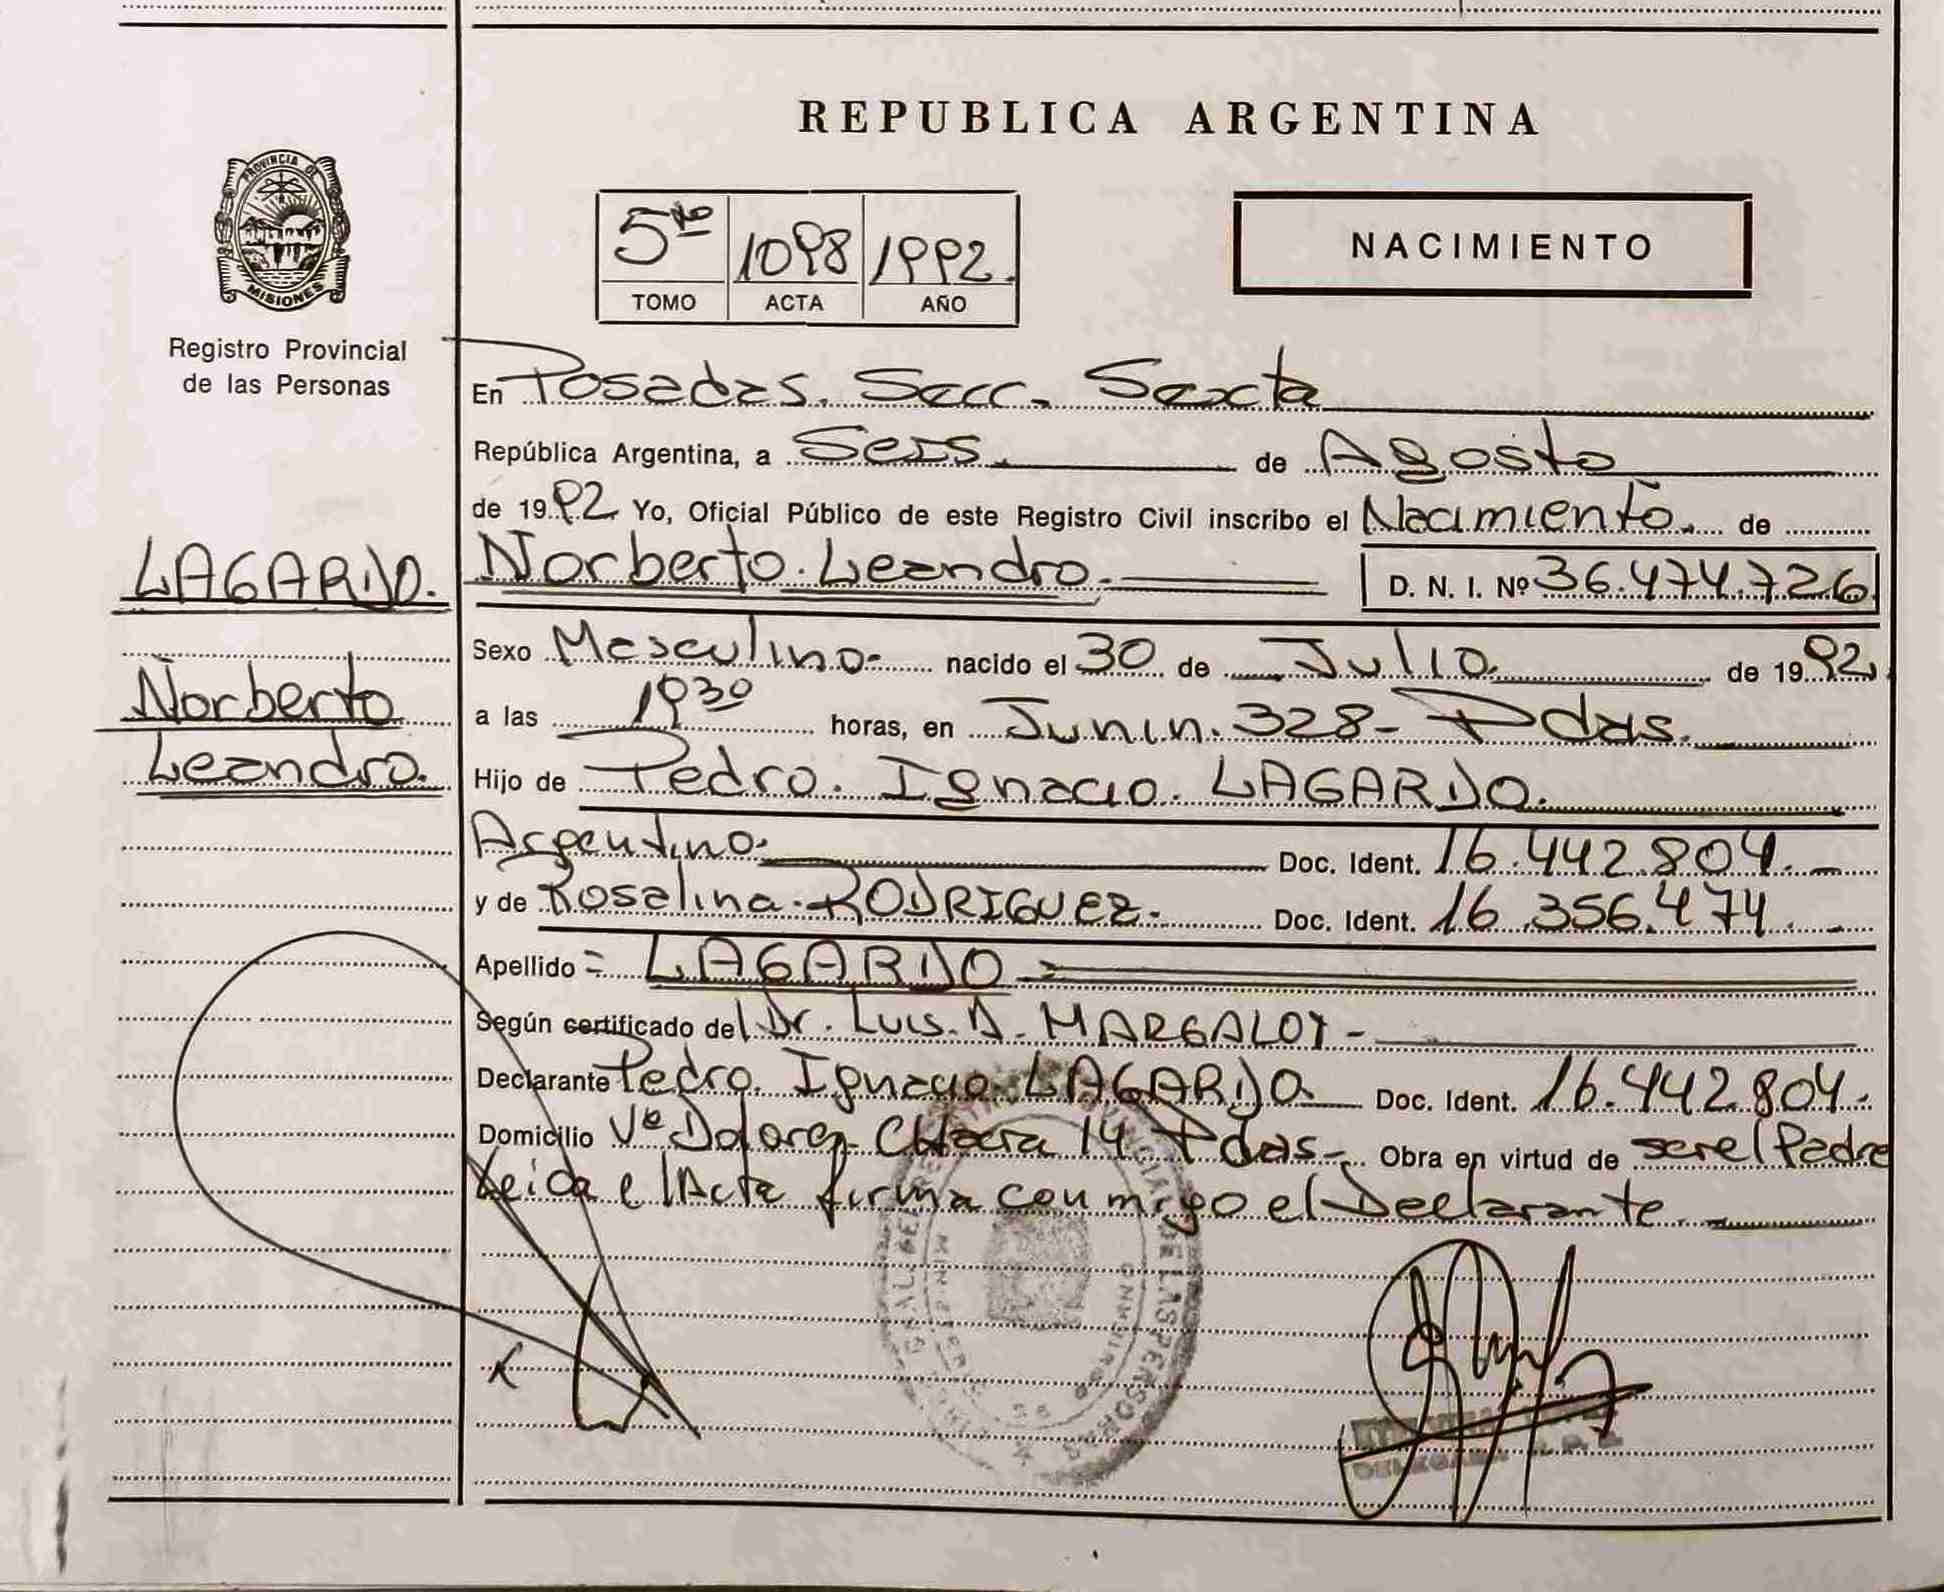 REPUBLICA ARGENTINA
PROVINCIA DE
MISIONES
Registro Provincial
de las Personas
5to 1098 1992.
TOMO ACTA AÑO
NACIMIENTO
En Posadas. Secc. Sexta
República Argentina, a Seis de Agosto
de 1992 Yo, Oficial Público de este Registro Civil inscribo el Nacimiento. de
LAGARDO.
Norberto
Leandro.
Norberto. Leandro. D. N. I. Nº 36.474.726
Sexo Masculino- nacido el 30 de Julio. de 1992
a las 1930 horas, en Junin. 328- Pdas.
Hijo de Pedro. Ignacio. LAGARDO.
Argentino. Doc. Ident. 16.442.804.
y de Rosalina. RODRIGUEZ. Doc. Ident. 16.356.474.
Apellido = LAGARDO
Según certificado del Dr. Luis. A. MARGALOT -
Declarante Pedro. Ignacio LAGARDO. Doc. Ident. 16.442.804.
Domicilio Vª Dolores Chacra 14 Pdas- Obra en virtud de ser el Padre
Leida el Acta firma conmigo el Declarante.
DE LAS PERSONAS